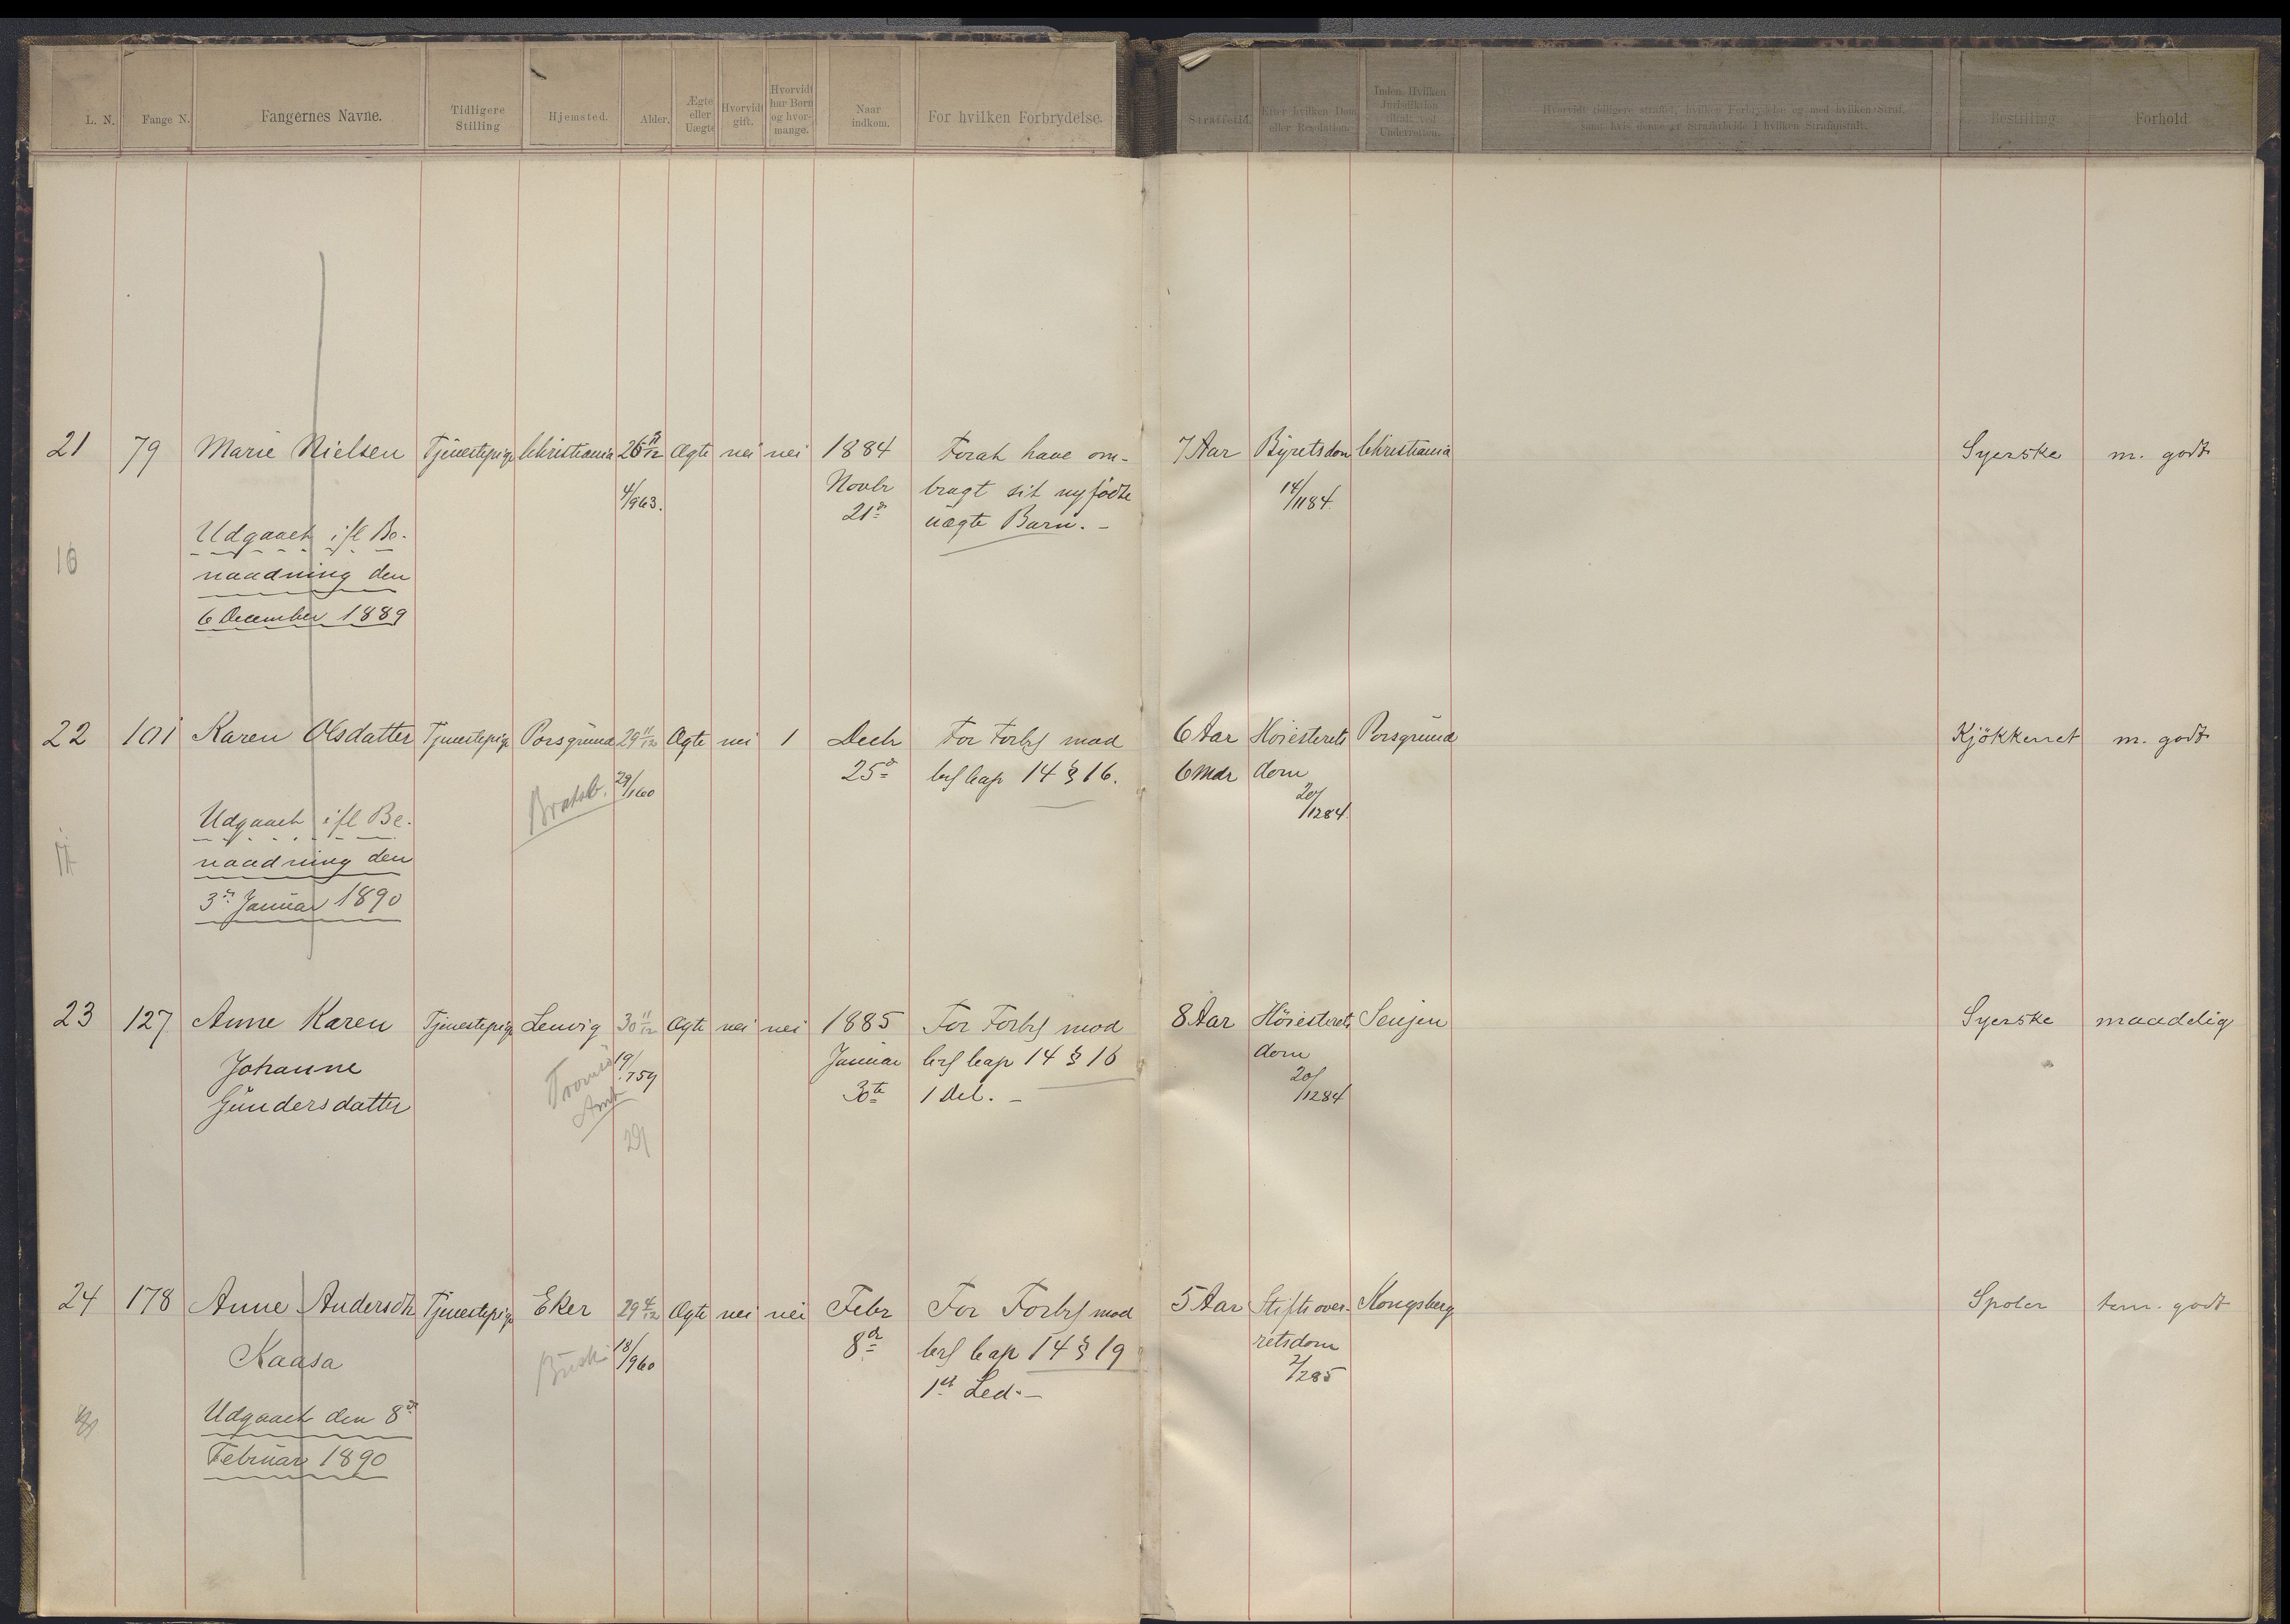 L. N.
Fange N.
Fangernes Navne.
Tidligere
Stilling
Hjemsted.
Alder.
Ægte
eller
Uægte
Hvorvidt
gift.
Hvorvidt
har Børn
og hvor-
mange.
Naar
indkom.
For hvilken Forbrydelse.
Straffetid.
Efter hvilken Dom
eller Resolution.
Inden Hvilken
Jurisdiktion
tiltalt ved
Underretten.
Hvorvidt tidligere straffet, hvilken Forbrydelse og med hvilken Straf,
samt hvis denne er Strafarbeide i hvilken Strafanstalt.
Bestilling
Forhold
21 79 Marie Nielsen Tjenestepige Christiania 26 11/12 Ægte nei nei 1884 Forat have om- 7 Aar Byretsdom Christiania Syerske m. godt
4/963. Novbr bragt sit nyfødte 14/1184.
21de uægte Barn. –
Udgaaet ifl Be-
naadning den
6 December 1889
16
22 101 Karen Olsdatter Tjenestepige Porsgrund 29 11/12 Ægte nei 1 Decbr For Forbr mod 6 Aar Høiesterets Porsgrund Kjökkenet m. godt
Bratsb. 29/160 25de Crl Cap 14 § 16. 6 Mdr dom
20/1284.
Udgaaet ifl Be-
naadning den
3de Januar 1890
17
23 127 Anne Karen Tjenestepige Lenvig 30 11/12 Ægte nei nei 1885 For Forbr mod 8 Aar Höiesterets Senjen Syerske maadelig
Johanne Tromsö 19/759 Januar Crl Cap 14 § 16 dom
Gundersdatter Amt 30te 1 Del. – 20/1284
24 178 Anne Andersdtr Tjenestepige Eker 29 4/12 Ægte nei nei Febr For Forbr mod 5 Aar Stiftsover- Kongsberg Spoler tem. godt
Kaasa Busk 18/960 8de Crl Cap 14 § 19 retsdom
1ste Led. – 2/285
Udgaaet den 8de
Februar 1890